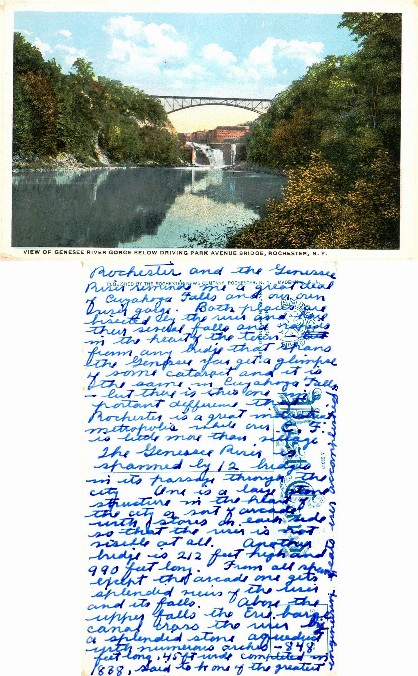 VIEW OF GENESEE RIVER GORGE BELOW DRIVING PARK AVENUE BRIDGE, ROCHESTER, N.Y.
Rochester and the Genesee
River remind us a great deal
of Cuyahoga Falls and our own
gorge. Both places are
bisected by the river and have
their several falls and rapids
in the heart of the town.
from any bridge that spans
the Genesee you get a glimpse
of some cataract and it is
the same in Cuyahoga Falls
- but there is this one im-
portant difference that
Rochester is a great
metropolis while our C. F.
is little more than village
The Genesee River is
spanned by 12 bridges
in its passage through the
city. One is a
structure in the heart of
the city a sort of arcade
with stores on each side
so that the river is not
visible at all. Another
bridge is 212 feet high and
990 feet long. From all
except the arcade one gets
splendid views of the river
and its falls. Above the
upper falls the Erie barge
canal crosses the river by
a splendid stone aqueduct
with numerous arches - 848
feet long, 45 ft wide completed in
1838, said to be one of the greatest
engineering feats ever accomplished
Post Card